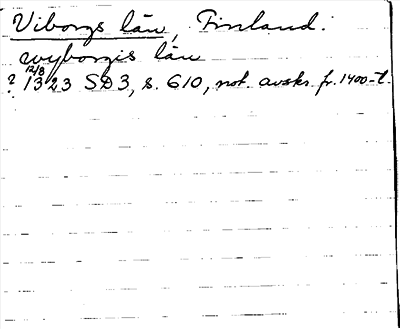 Viborgs län, Finland.
wyborgis län
? 12/8 1323 SD3, s. 610, not. avskr. fr. 1400-t.